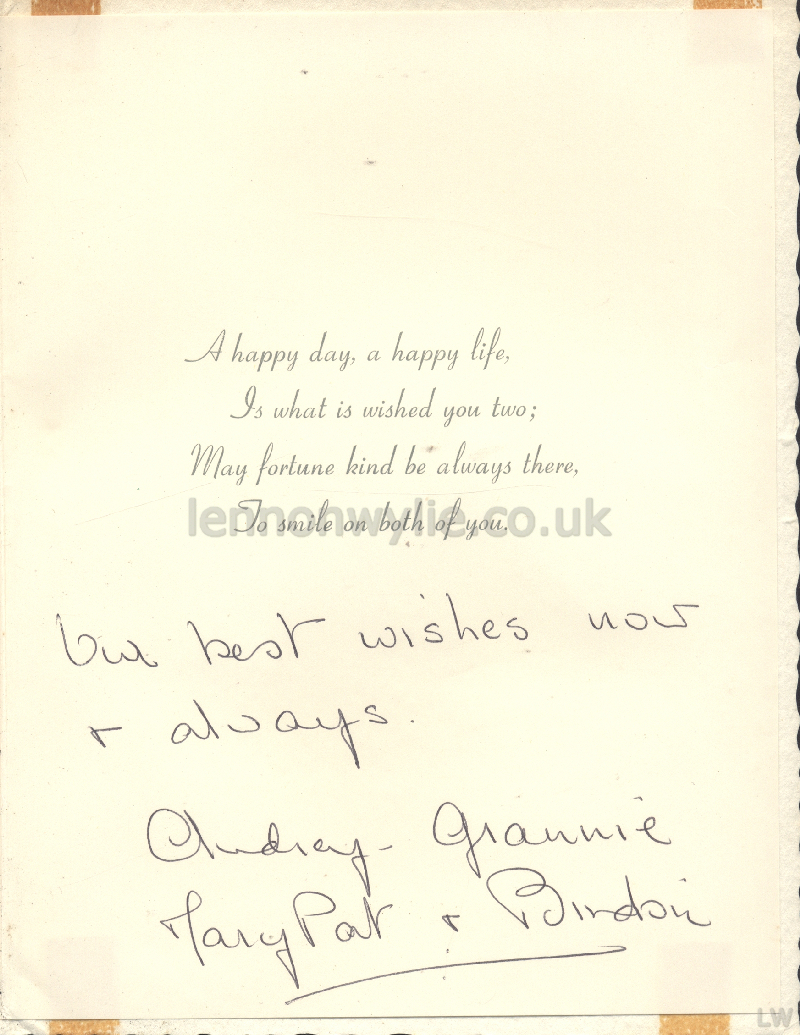 A happy day, a happy life,
Is what is wished you two;
May fortune kind be always there,
To smile on both of you.
lennonwylie.co.uk
Our best wishes now
+ always.
Audrey - Grannie
Mary Pat +
LW